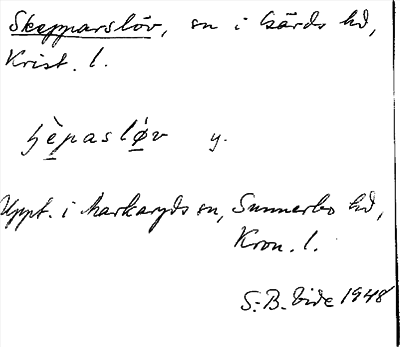 Skepparslöv, sn i Gärds hd,
Krist. l.
ʃèpasløv y.
Uppt. i Markaryds sn, Sunnerbo hd,
Kron. l.
S. B. Vide 1948